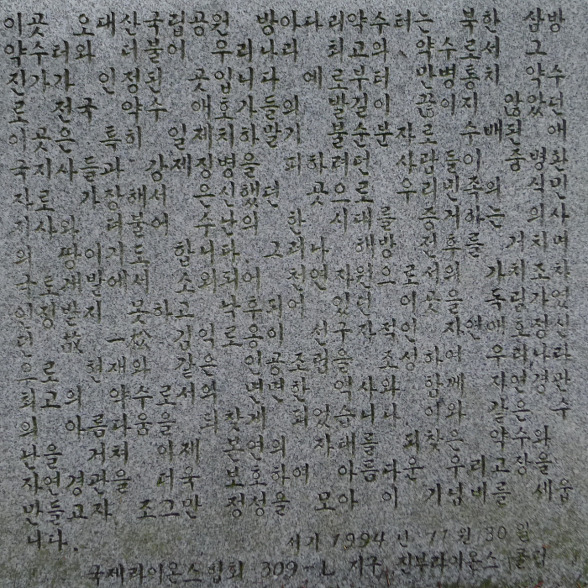 이곳 오대산국립공원 방아다리약수터는 북한 삼방
약수터와 더불어 우리나라 최고의 약수로서 그
진가가 인정된 곳입니다 예로부터 만병통치 약수
로 전국 약수 애호가들의 발길이 끊이지 않았던
이곳은 특히 일제치하말기 불순분자로 수배된 애
국지사들과 강제징병을 피하려던 사람들이 중병환
자로 가장해서 은신했던 곳으로 우리민족의 식민
지사와 더불어 수난의 한 시대를 증거하는 의사
의 땅이기도 합니다. 그러나 해방 전후를 거치며
국토개발에서 소외되어 천연 자원으로서의 가치조차
인정받지 못하고 낙후되어 있던 이곳을 독림가
故 一松 김익로 옹이 선구자적인 자연애호정신
으로 같은 인공조림을 조성하여 우리나라
최고의 약수로서의 면면한 역사와 함께 자연경관
의 아름다움을 되찾게 되었습니다 이와 같은 수
난을 거쳐 이제 본연의 자태를 되찾은 약수와
자연경관을 더욱 보호하여 아름다운 우리고장을
만들고자 조그만 정성을 모아 이 기념비를 세웁
니다.
서기 1994년 11월 30일
국제라이온스협회 309-L 지구 진부라이온스클럽